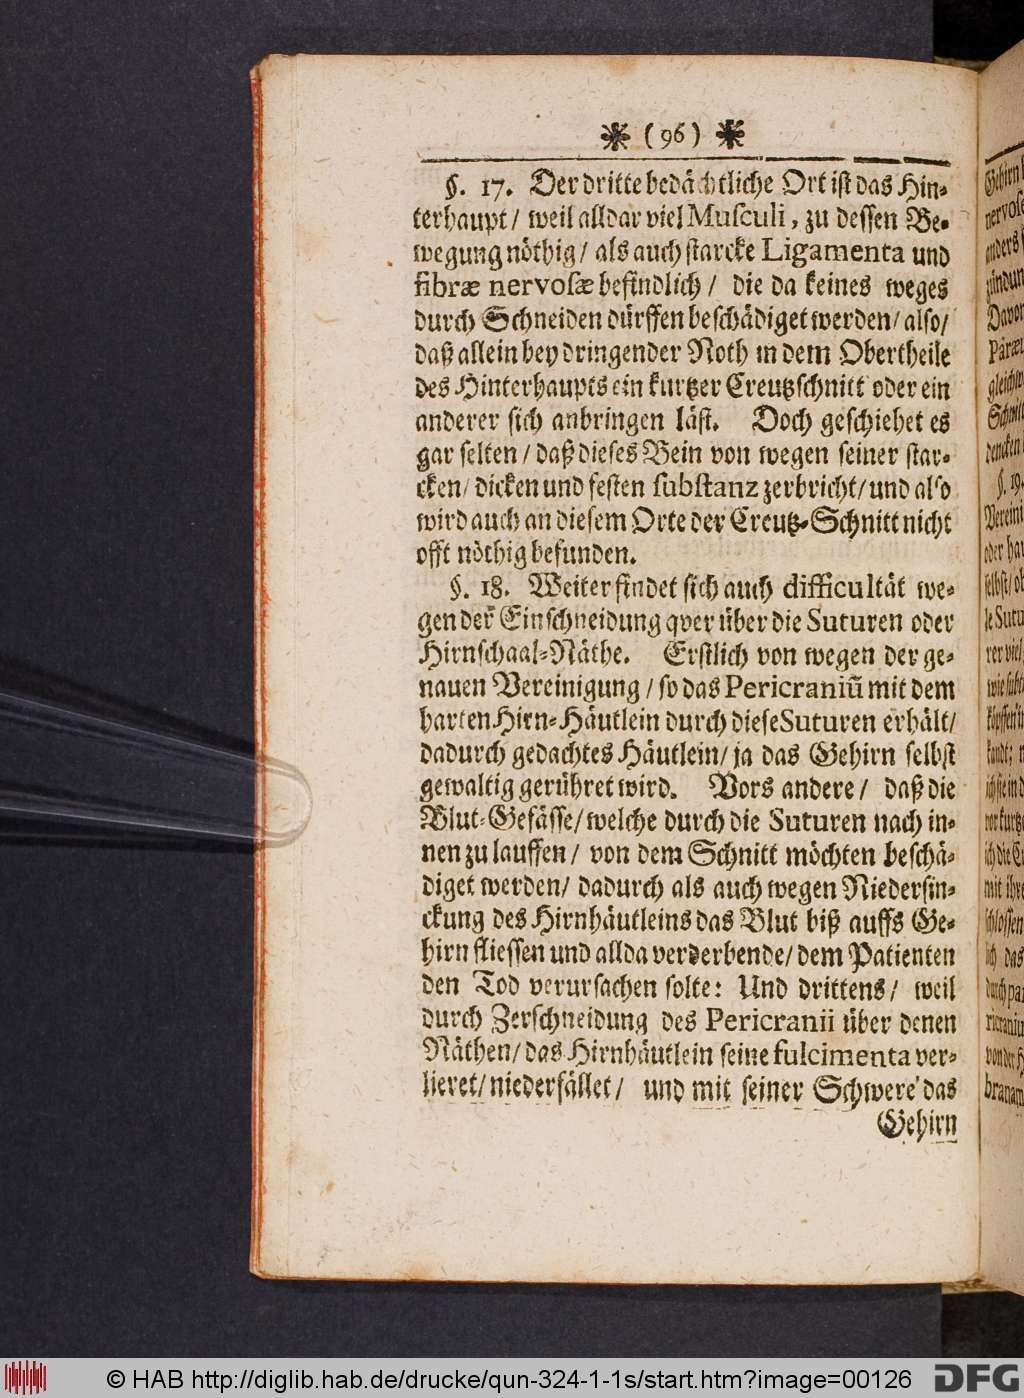 (96)
§. 17. Der dritte bedächtliche Ort ist das Hin-
terhaupt/ weil alldar viel Musculi, zu dessen Be-
wegung nöthig/ als auch starcke Ligamenta und
fibræ nervosæ befindlich/ die da keines weges
durch Schneiden dürffen beschädiget werden/ also/
daß allein bey dringender Noth in dem Obertheile
des Hinterhaupts ein kurtzer Creutzschnitt oder ein
anderer sich anbringen läst. Doch geschiehet es
gar selten/ daß dieses Bein von wegen seiner star-
cken/ dicken und festen substanz zerbricht/ und also
wird auch an diesem Orte der Creutz-Schnitt nicht
offt nöthig befunden.
§. 18. Weiter findet sich auch difficultät we-
gen der Einschneidung qver über die Suturen oder
Hirnschaal-Näthe. Erstlich von wegen der ge-
nauen Vereinigung/ so das Pericraniũ mit dem
harten Hirn-Häutlein durch diese Suturen erhält/
dadurch gedachtes Häutlein/ ja das Gehirn selbst
gewaltig gerühret wird. Vors andere/ daß die
Blut-Gefässe/ welche durch die Suturen nach in-
nen zu lauffen/ von dem Schnitt möchten beschä-
diget werden/ dadurch als auch wegen Niedersin-
ckung des Hirnhäutleins das Blut biß auffs Ge-
hirn fliessen und allda verderbende/ dem Patienten
den Tod verursachen solte: Und drittens/ weil
durch Zerschneidung des Pericranii über denen
Näthen/ das Hirnhäutlein seine fulcimenta ver-
lieret/ niederfället/ und mit seiner Schwere das
Gehirn
© HAB http://diglib.hab.de/drucke/qun-324-1-1s/start.htm?image=00126
DFG